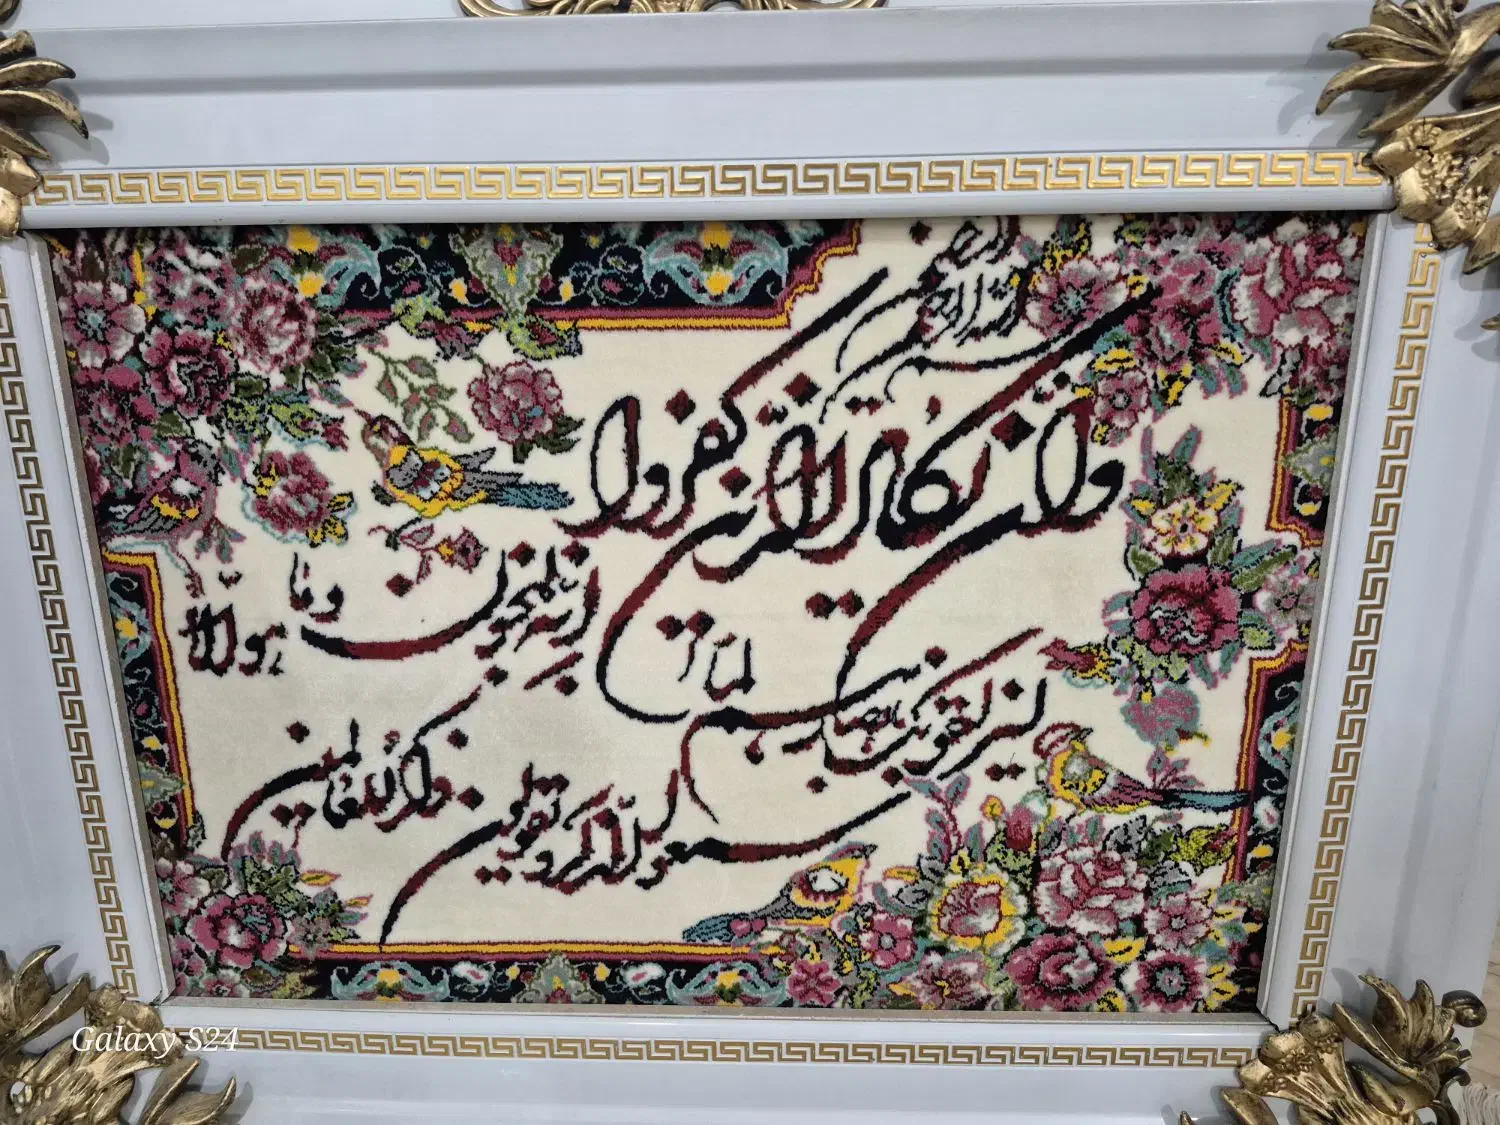 بسم الله الرحمن الرحیم
وان یکاد الذین کفروا
لیزلقونک بابصارهم لما سمعوا الذکر ویقولون
انه لمجنون وما هو الا
ذکر للعالمین
Galaxy S24